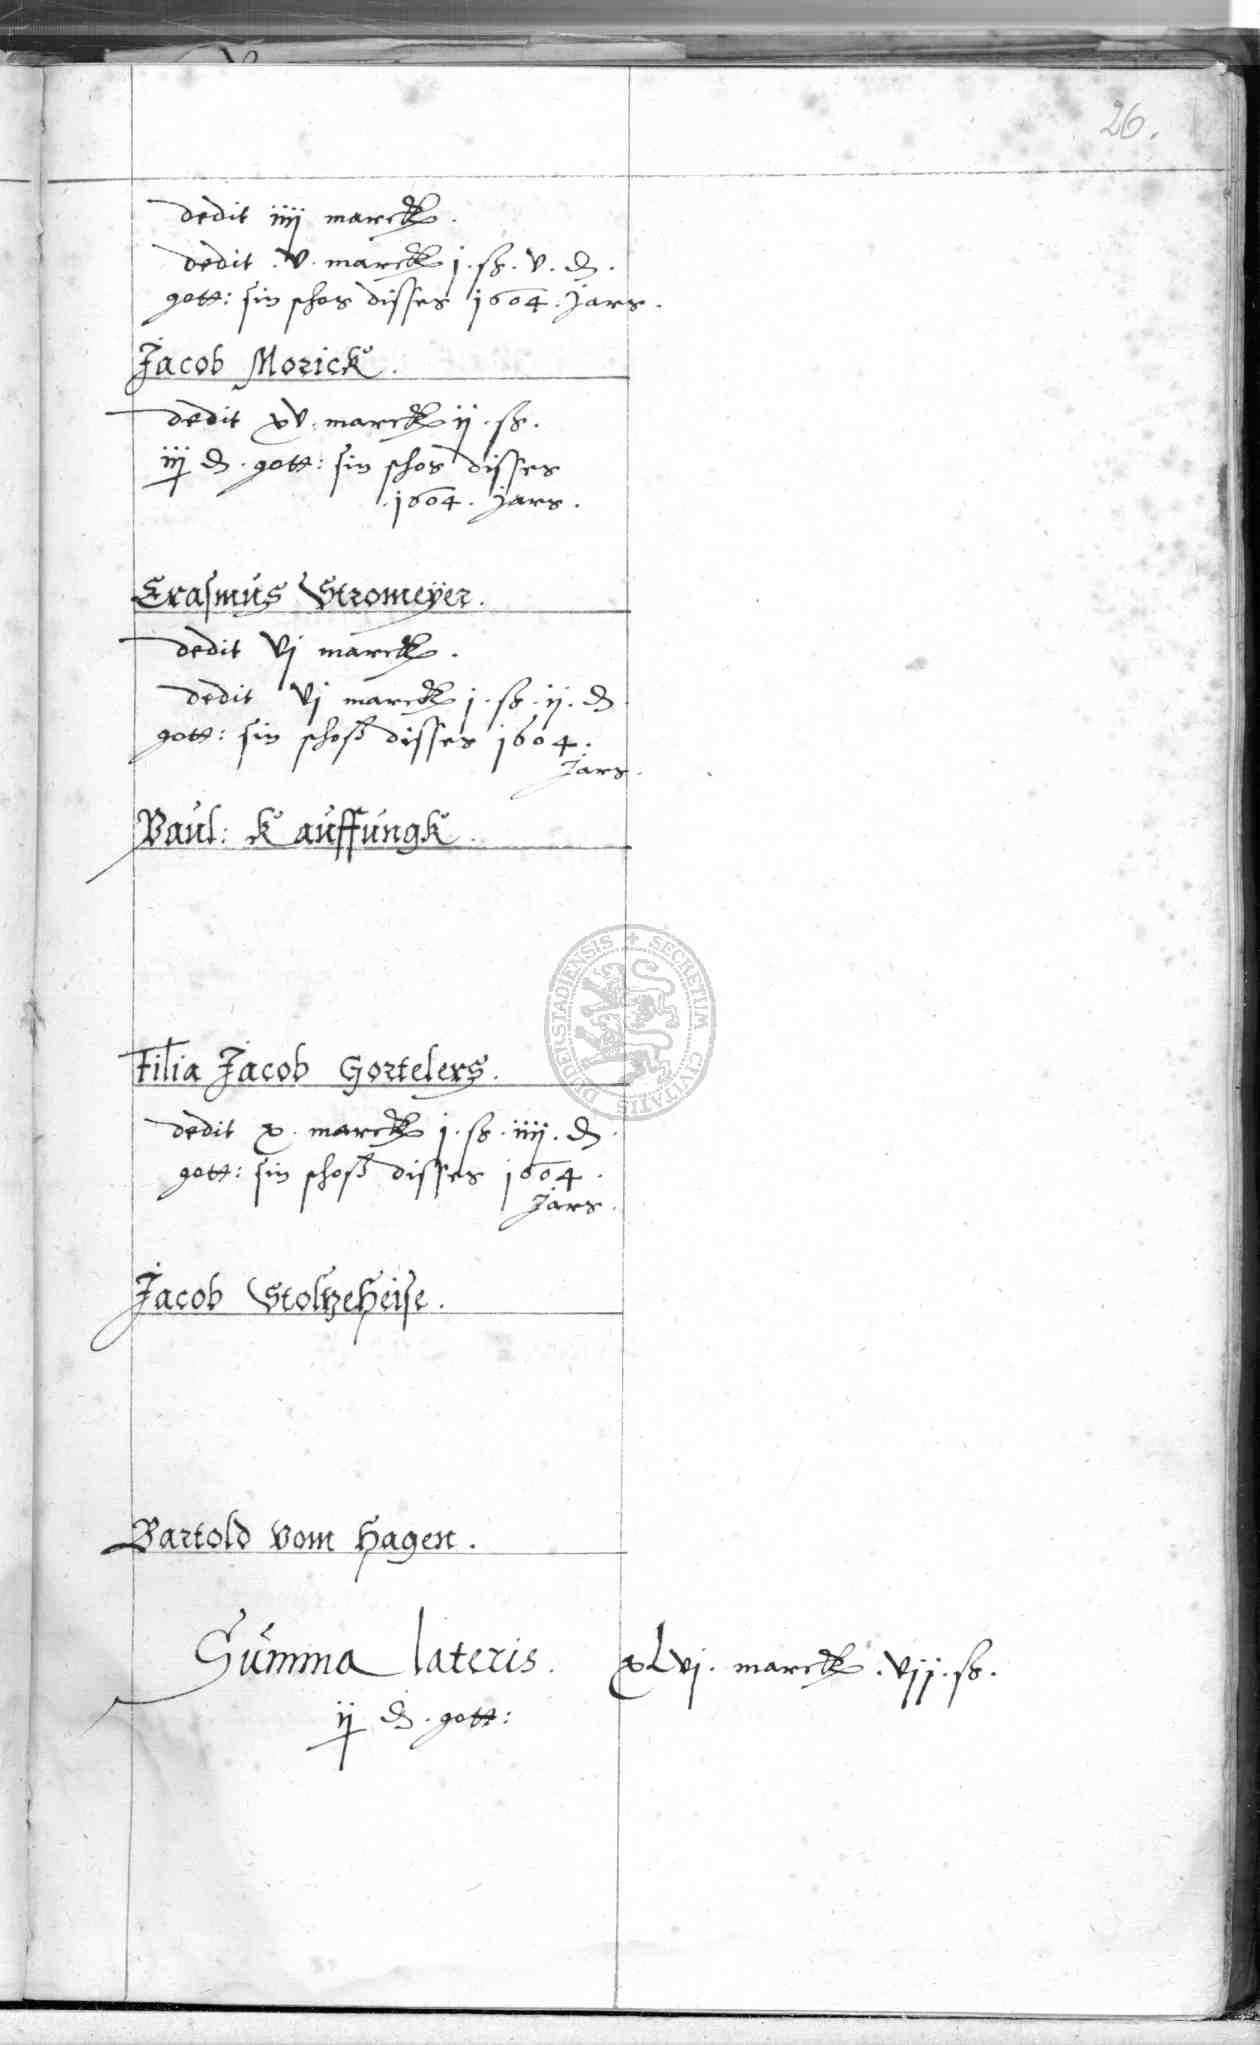 26.
dedit iiij marck.
dedit . v . marck j . ß . v . ₰ .
gott: sin schos disses 1604 . Jars .
Jacob Morick .
dedit xv . marck ij . ß .
iij ₰ . gott: sin schos disses
. 1604 . Jars .
Erasmus Stromeÿer .
dedit vj marck .
dedit vj marck j . ß . ij . ₰
gott: sin schoß disses 1604 .
Jars .
Paul: Kauffungk .
Filia Jacob Gortelers .
dedit x . marck j . ß . iiij . ₰ .
gott: sin schoß disses 1604 .
Jars .
Jacob Stoltzeheise .
Bartold vom Hagen .
Summa lateris . xLvj . marck . vij . ß .
ij ₰ . gott:
SECRETUM CIVITATIS DUDERSTADIENSIS